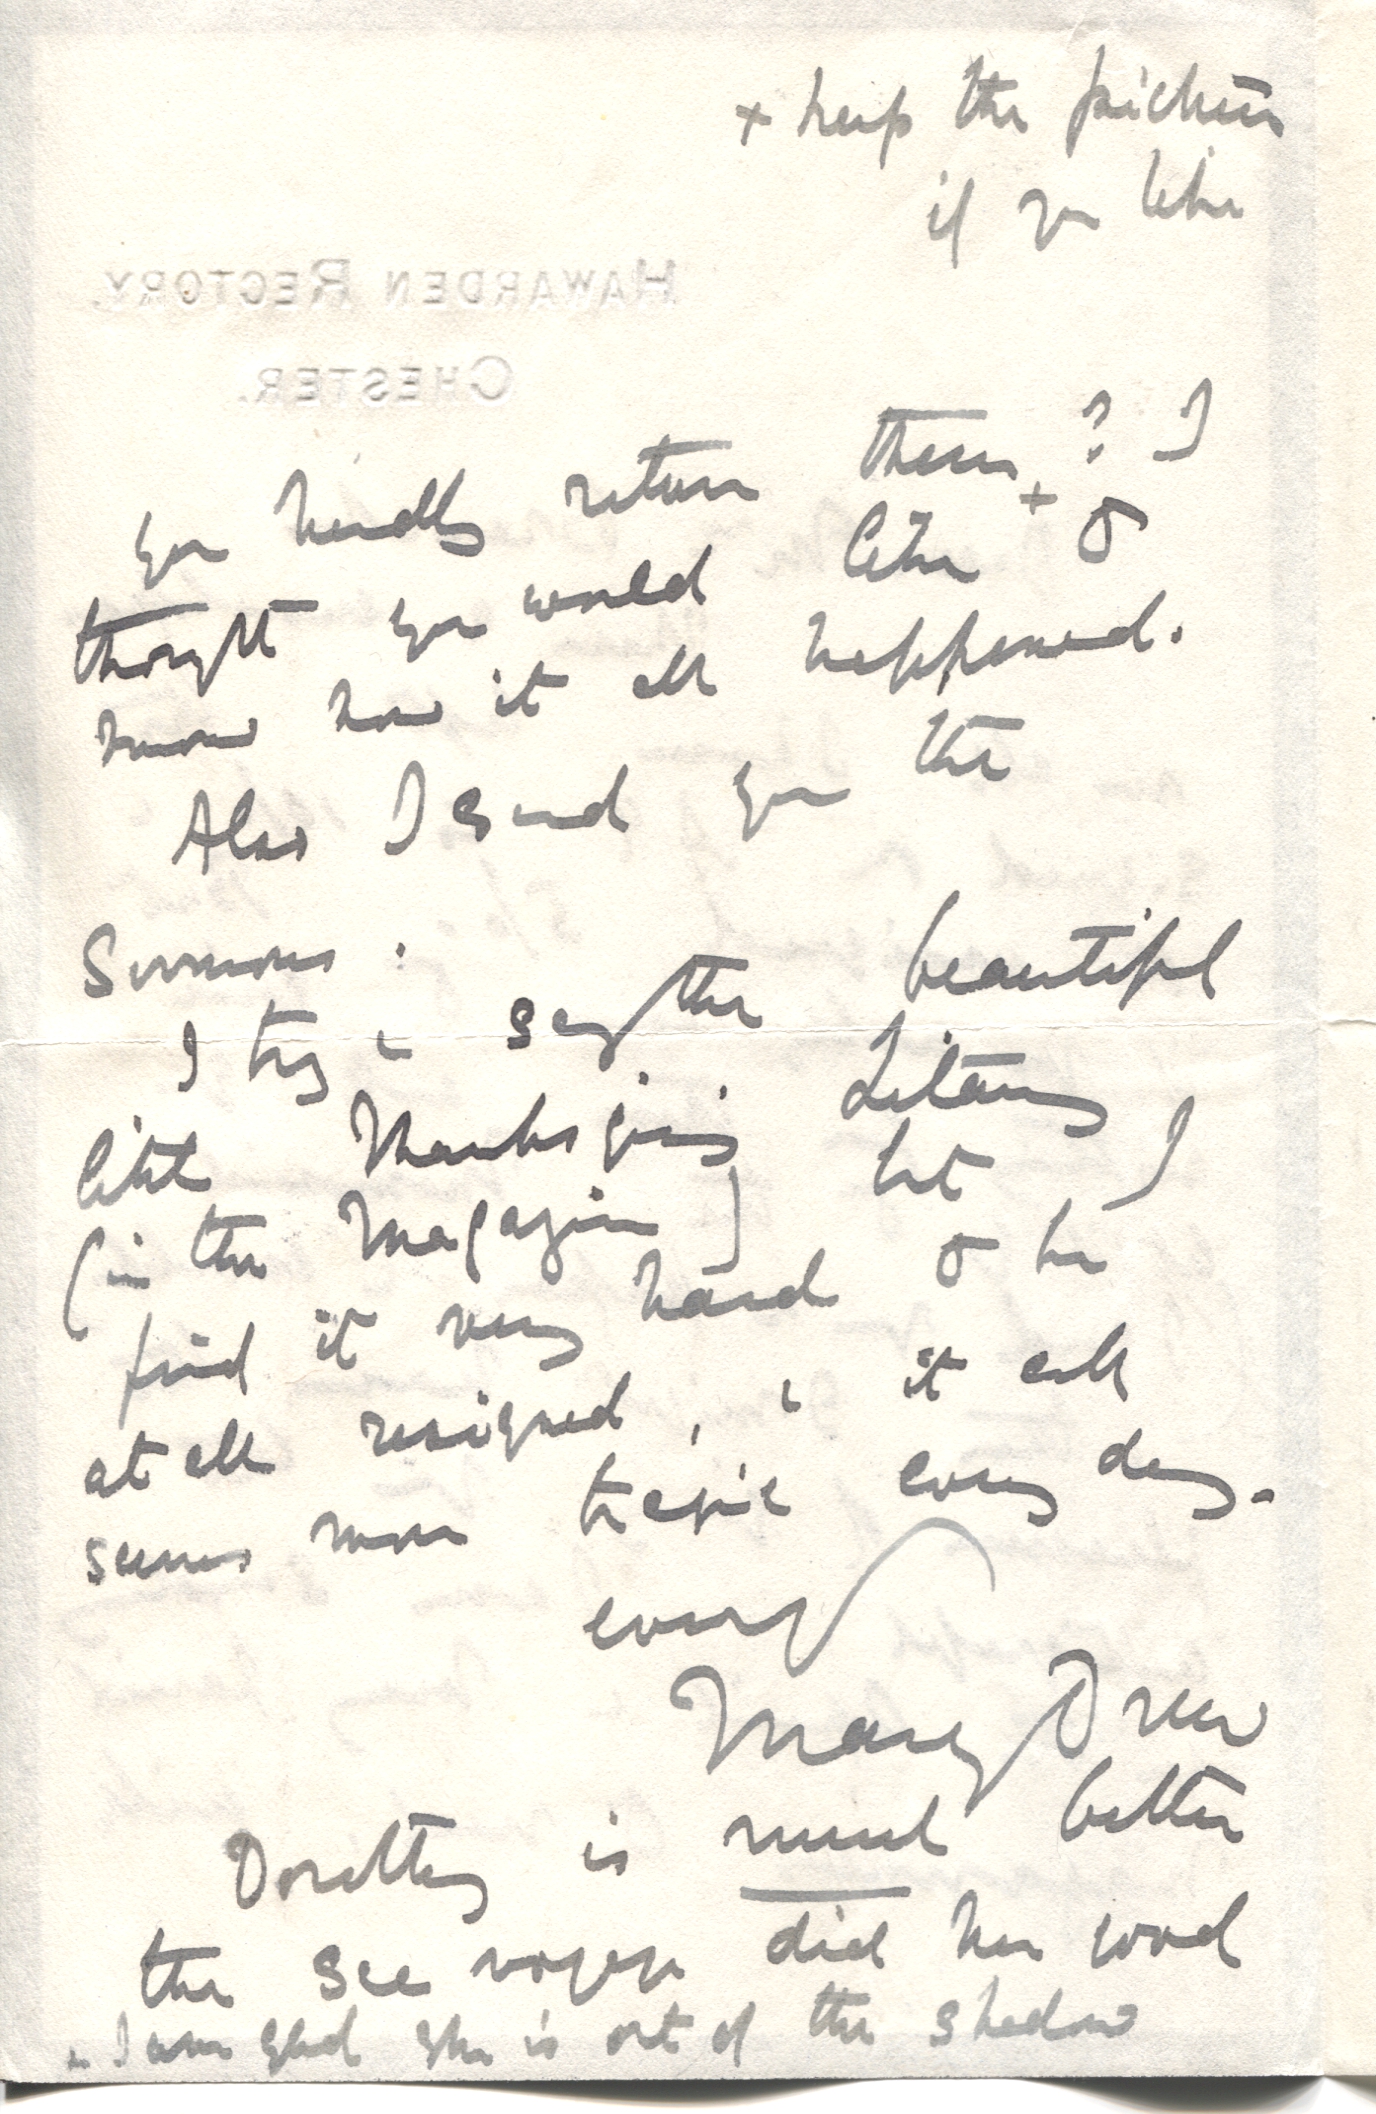 + keep the pictures
if you like
HAWARDEN RECTORY,
CHESTER.
you kindly return them + ? I
thought you would like to
know how it all happened.
Also I send you the
Sermons :
I try & say the beautiful
little Thanksgiving Litany
(in the Magazine) but I
find it very hard to be
at all resigned, & it all
seems more tragic every day.
every
Mary Drew
Dorothy is much better
the sea voyage did her good
& I am glad she is out of the shadow